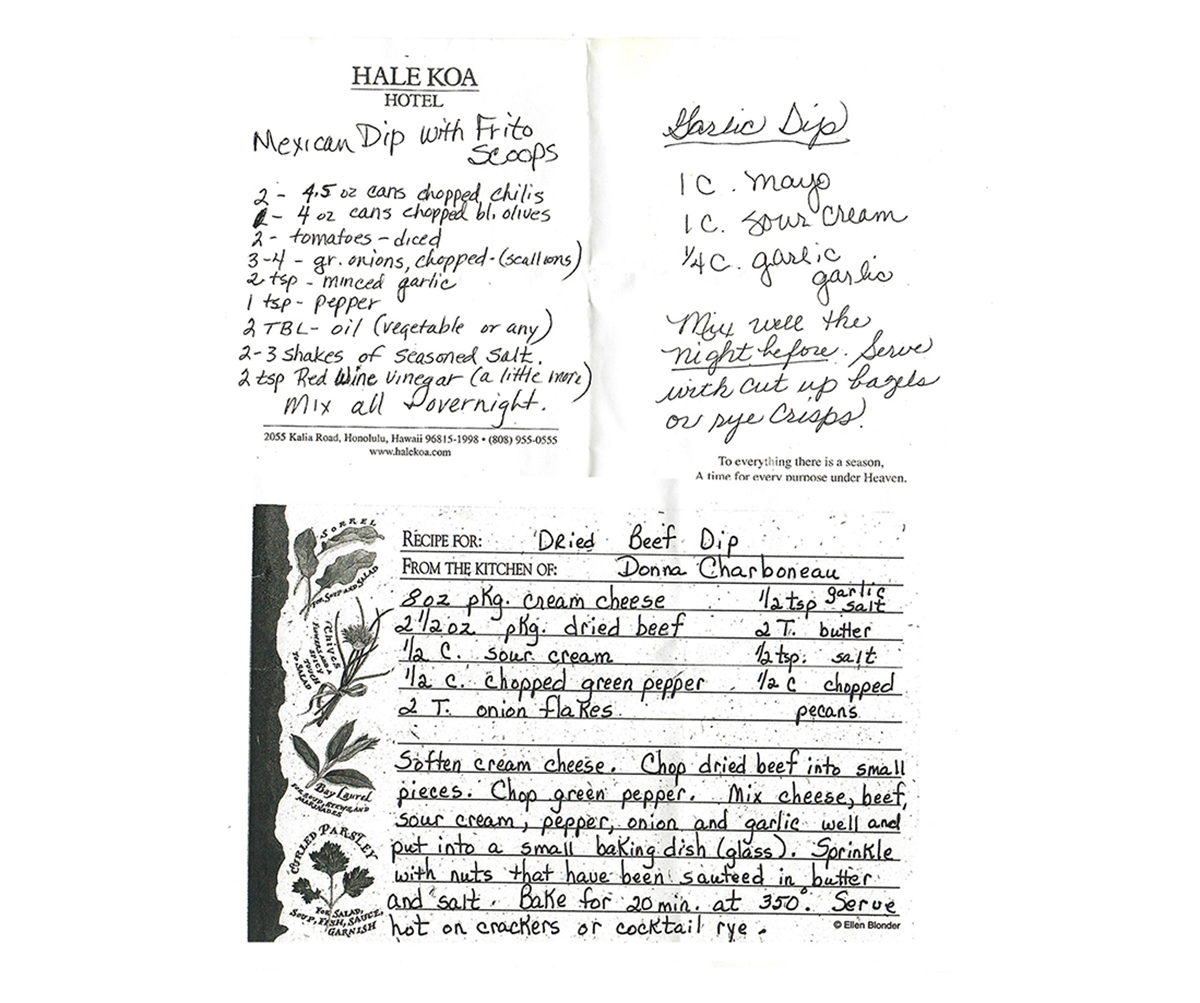 HALE KOA
HOTEL
Mexican Dip with Frito
Scoops
2 - 4.5 oz cans chopped chilis
- 4 oz cans chopped bl. olives
2 - tomatoes - diced
3-4 - gr. onions, chopped - (scallions)
2 tsp - minced garlic
1 tsp - pepper
2 TBL - oil (vegetable or any)
2-3 shakes of seasoned salt.
2 tsp Red Wine vinegar (a little more)
Mix all & overnight.
2055 Kalia Road, Honolulu, Hawaii 96815-1998 • (808) 955-0555
www.halekoa.com
Garlic Dip
1 C. mayo
1 C. sour cream
1/4 C. garlic
garlic
Mix well the
night before. Serve
with cut up bagels
or rye crisps.
To everything there is a season,
A time for every purpose under Heaven.
SORREL
FOR SOUP AND SALAD
Chives
TO SALAD
Bay Laurel
FOR SOUP, STEWS, AND
MARINADES
CURLED PARSLEY
FOR SALAD,
SOUP, FISH, SAUCE,
GARNISH
RECIPE FOR: Dried Beef Dip
FROM THE KITCHEN OF: Donna Charboneau
8 oz pkg. cream cheese 1/2 tsp garlic salt
2 1/2 oz pkg. dried beef 2 T. butter
1/2 C. sour cream 1/2 tsp. salt
1/2 c. chopped green pepper 1/2 C chopped
2 T. onion flakes. pecans
Soften cream cheese. Chop dried beef into small
pieces. Chop green pepper. Mix cheese, beef,
sour cream, pepper, onion and garlic well and
put into a small baking dish (glass). Sprinkle
with nuts that have been sauteed in butter
and salt. Bake for 20 min. at 350°. Serve
hot on crackers or cocktail rye.
© Ellen Blonder